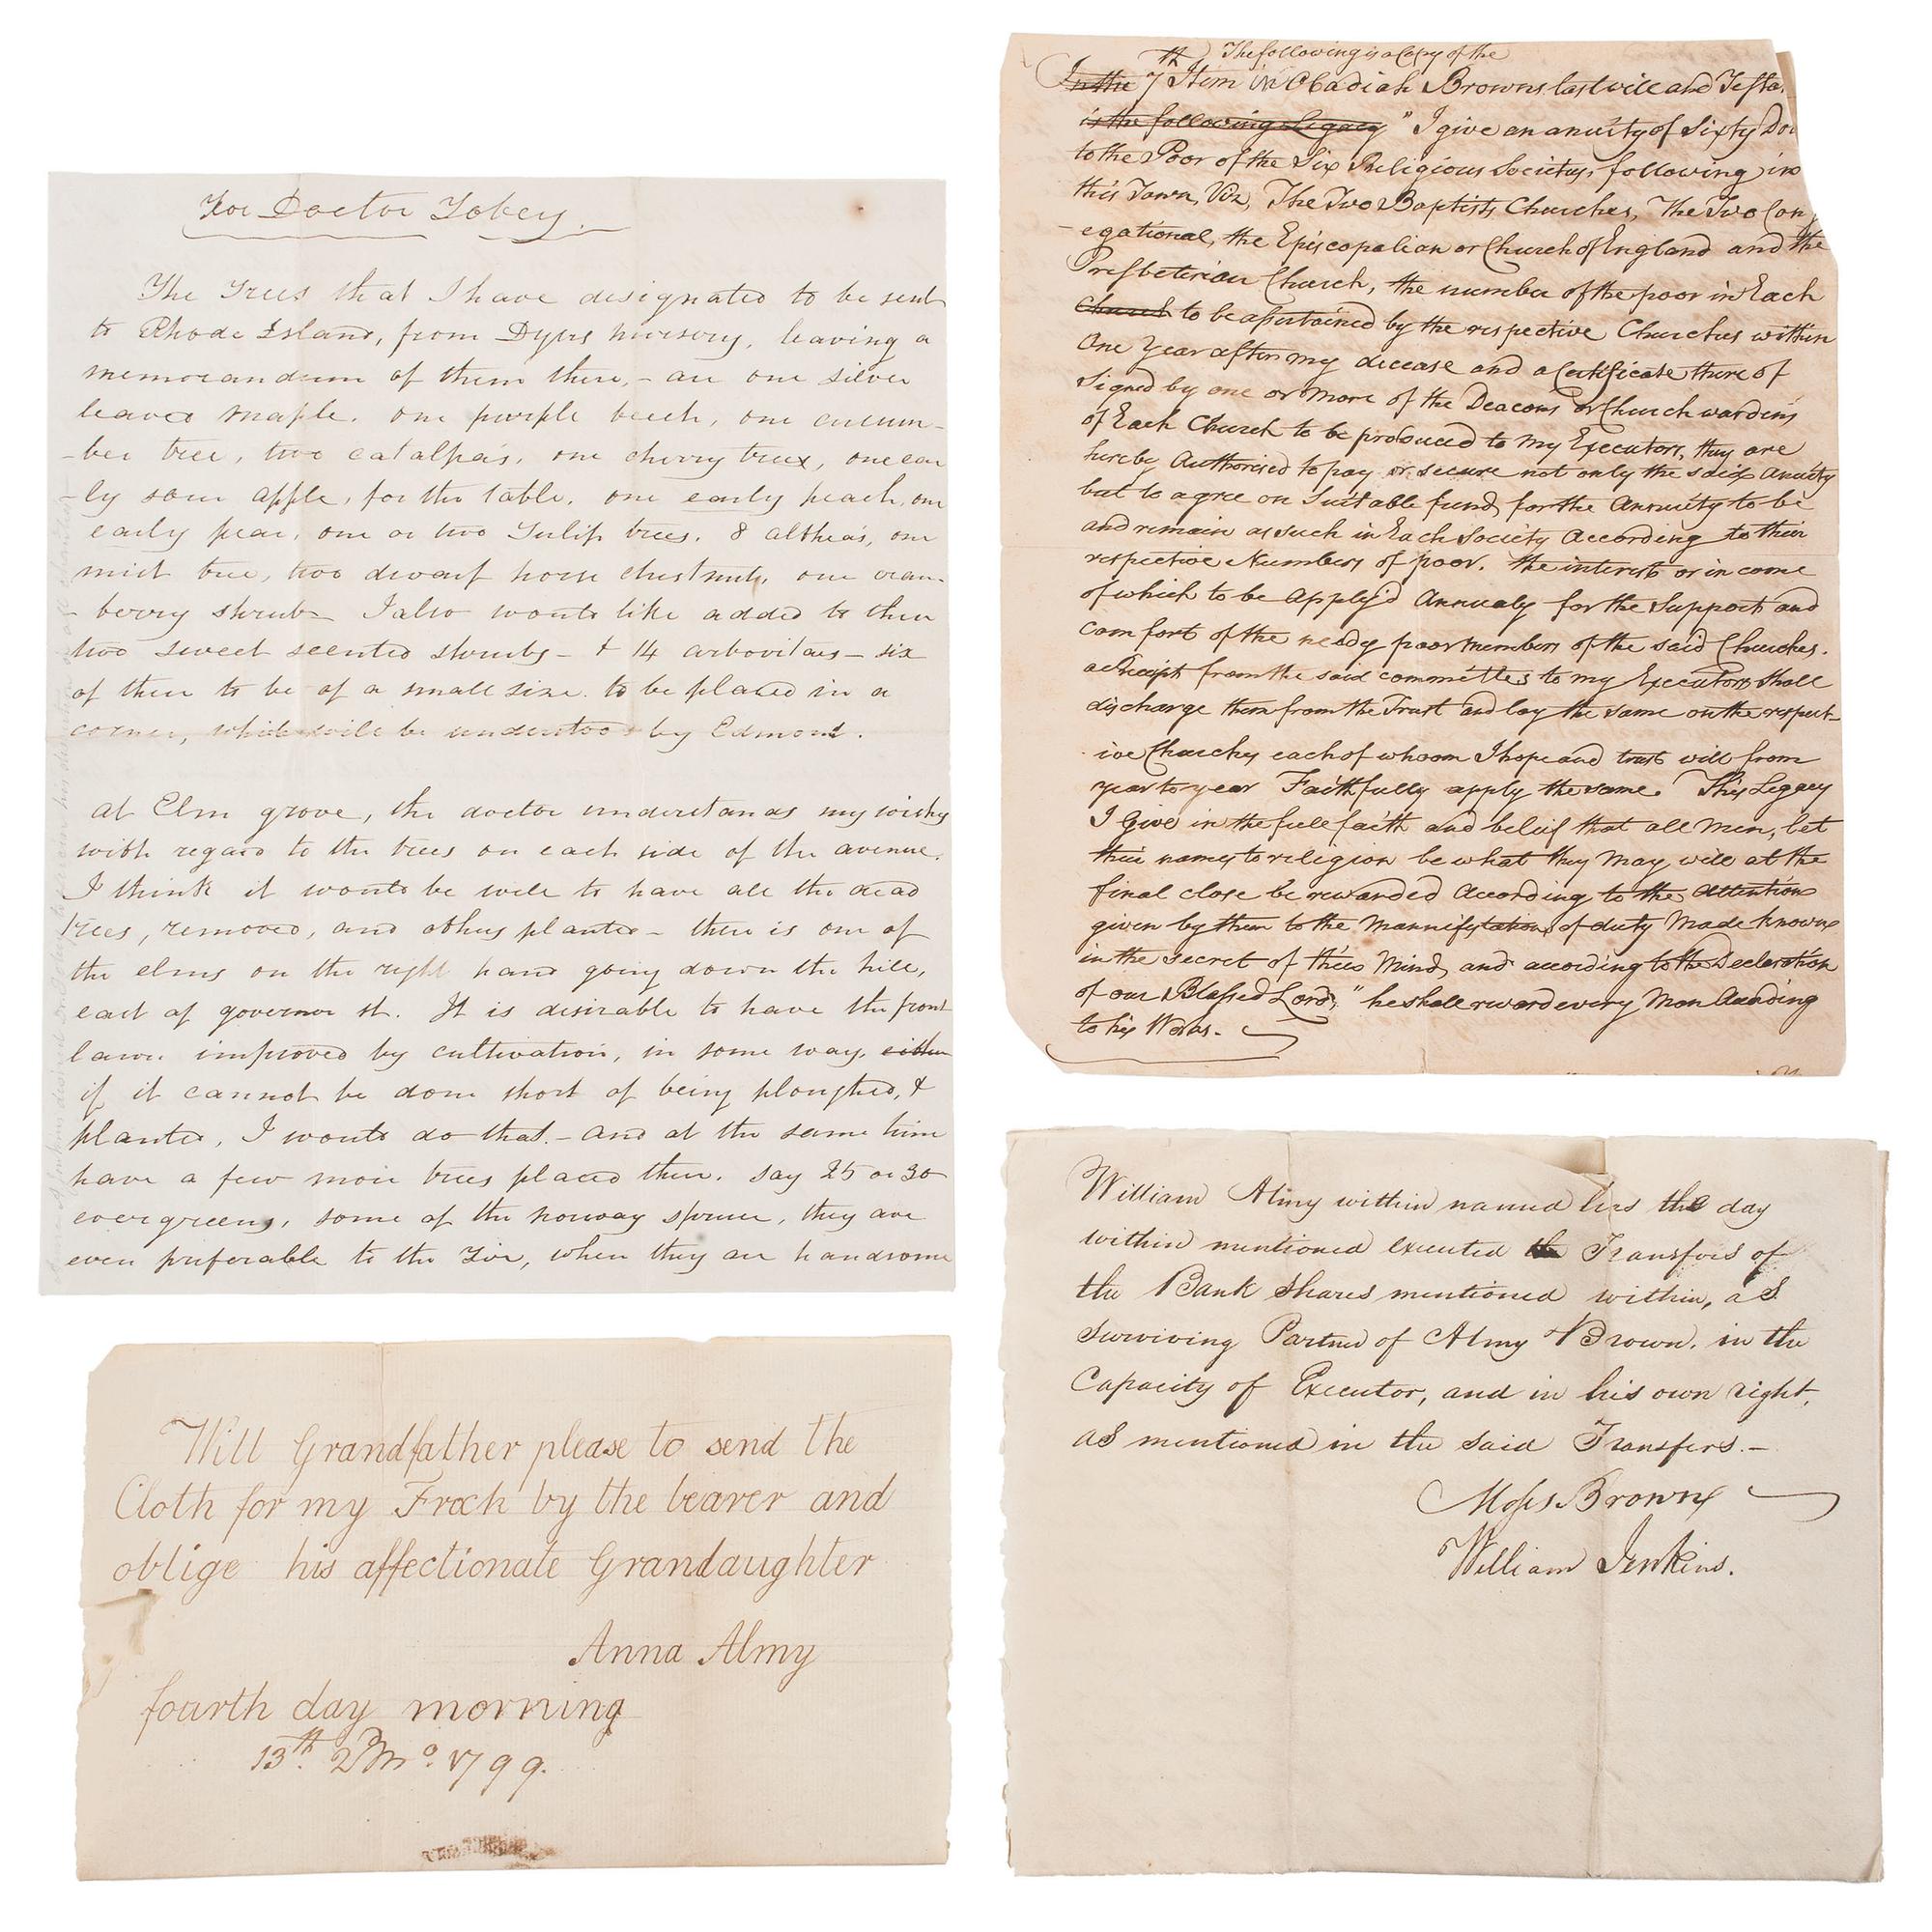 For Doctor Tobey.
The Trees that I have designated to be sent
to Rhode Island, from Dyers nursery, leaving a
memorandum of them there, - are one silver
leaved maple. one purple beech, one cucum-
-ber tree, two catalpa's, one cherry tree, one ear
-ly sour apple, for the table. one early peach, one
early pear, one or two Tulip trees. 8 althea's, one
mist tree, two dwarf horse chestnuts, one cran-
-berry shrub - I also would like added to them
two sweet scented shrubs - & 14 arbovitaes - six
of them to be of a small size. to be placed in a
corner, which will be understood by Edmond.
at Elm grove, the doctor understands my wishes
with regard to the trees on each side of the avenue.
I think it would be well to have all the dead
trees, removed, and others planted - there is one of
the elms on the right hand going down the hill,
east of governor st. It is desirable to have the front
lawn improved by cultivation, in some way, either
if it cannot be done short of being ploughed, &
planted, I would do that. - and at the same time
have a few more trees placed there. say 25 or 30
evergreens, some of the norway spruce, they are
even preferable to the Fir, when they are handsome
Will Grandfather please to send the
Cloth for my Frock by the bearer and
oblige his affectionate Grandaughter
Anna Almy
fourth day morning
13th. 2 Mo. 1799.
The following is a Copy of the
In the 7th Item in Obadiah Browns last will and Testa
is the following Legacy " I give an anuity of Sixty Dol
to the Poor of the Six Religious Societys, following in
this Town, Viz, The Two Baptists Churches, The Two Con
-egational, the Episcopalian or Church of England and the
Presbeterian Church, the number of the poor in Each
Church to be assertained by the respective Churches within
One Year after my decease and a Certificate there of
Signed by one or More of the Deacons or Church wardens
of Each Church to be produced to my Executors, they are
hereby Authorised to pay or secure not only the said Anuity
but to agree on Suitable fund for the Annuity to be
and remain as such in Each Society According to their
respective Numbers of poor. the interest or in come
of which to be Apply'd Annualy for the Support and
comfort of the needy poor members of the said Churches.
a Receipt from the said committees to my Executors Shall
discharge them from the Trust and lay the same on the respect-
ive Churches each of whoom I hope and trust will from
year to year Faithfully apply the same. This Legacy
I Give in the full faith and belief that all Men, let
their names to religion be what they May will at the
final close be rewarded According to the attention
given by them to the Mannifstations of duty Made known
in the secret of their Mind, and according to the Decleration
of our Blessed Lord, " he shall reward every Man Acording
to his Works.
William Almy within named hers the day
within mentioned executed the Transfers of
the Bank shares mentioned within, as
surviving Partner of Almy & Brown. in the
Capacity of Executor, and in his own right,
as mentioned in the said Transfers. -
Moses Brown
William Jenkins.